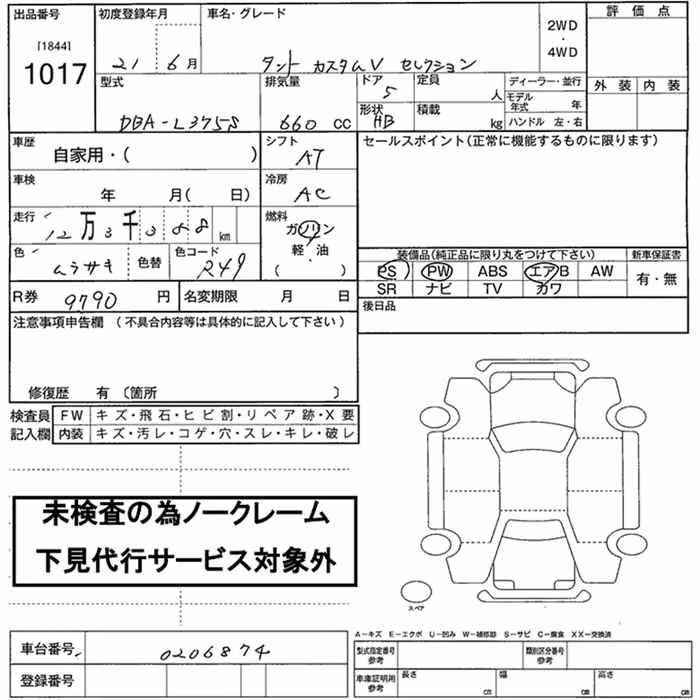 出品番号 初度登録年月 車名・グレード 評価点
[1844]
1017
21 6月 タント カスタムV セレクション
2WD
・
4WD
型式 排気量 ドア 定員 ディーラー・並行 外装 内装
DBA-L375S 660 CC 5 人
モデル年式 年
形状 積載
HB kg ハンドル 左・右
車歴 シフト セールスポイント(正常に機能するものに限ります)
自家用・( ) AT
車検 冷房
年 月( 日) AC
走行 12万3千 km 燃料
ガソリン
軽・油
( )
色 色替 色コード
ムラサキ R49
装備品(純正品に限り丸をつけて下さい) 新車保証書
PS PW ABS エアB AW 有・無
SR ナビ TV カワ
R券 9790 円 名変期限 月 日
後日品
注意事項申告欄 (不具合内容等は具体的に記入して下さい)
修復歴 有 〔箇所 〕
検査員 FW キズ・飛石・ヒビ割・リペア跡・X要
記入欄 内装 キズ・汚レ・コゲ・穴・スレ・キレ・破レ
未検査の為ノークレーム
下見代行サービス対象外
スペア
A−キズ E−エクボ U−凹み W−補修跡 S−サビ C−腐食 XX−交換済
車台番号 0206874
型式指定番号 参考 類別区分番号 参考
登録番号
車庫証明用 参考 長さ cm 幅 cm 高さ cm